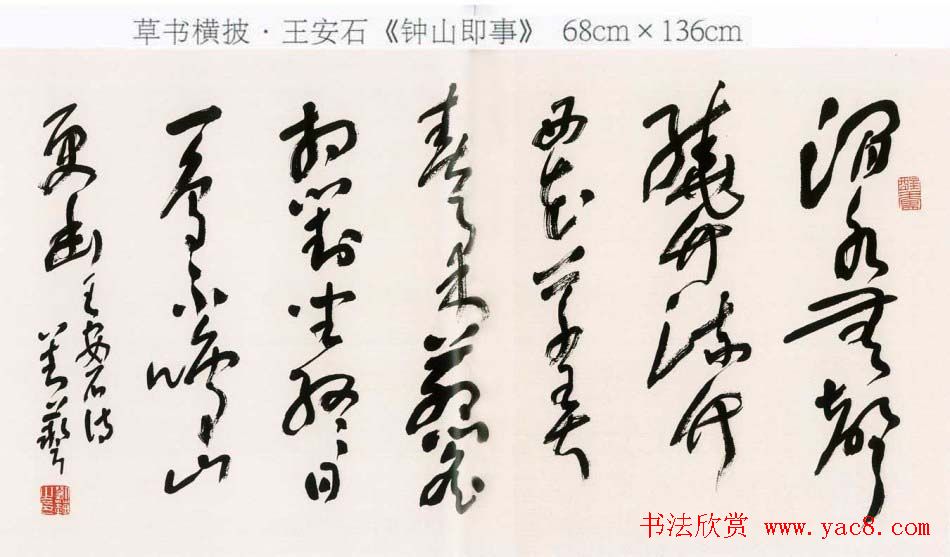 草书横披·王安石《钟山即事》 68cm×136cm
澗水無聲
繞竹流竹
西花草弄
春柔茅簷
相對坐終日
一鳥不鳴山
更幽
王安石诗
书法欣赏 www.yac8.com